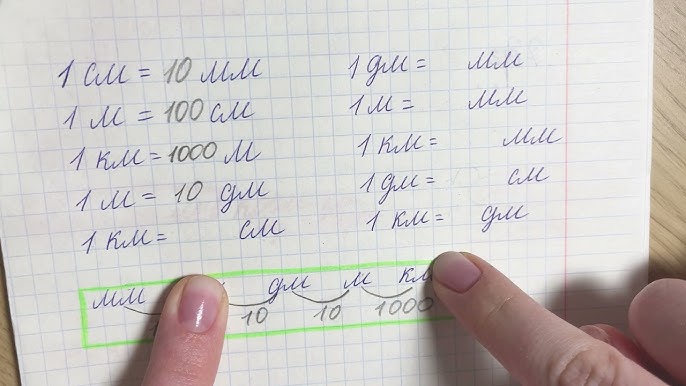 1 см = 10 мм
1 м = 100 см
1 км = 1000 м
1 м = 10 дм
1 км = см
1 дм = мм
1 м = мм
1 км = мм
1 дм = см
1 км = дм
мм дм м км
10 10 1000